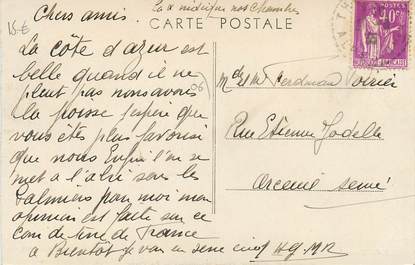 15€
La x indique nos chambres
Chers amis.
CARTE POSTALE
POSTES
40c
La côte d'azur est
belle quand il ne
pleut pas nous avons
la poisse j'espère que
vous êtes plus favorisé
que nous Enfin l'on se
met a l'abri sous les
Palmiers pour moi mon
opinion est faite sur ce
coin de terre de France
a Bientôt je vous en serre cinq
06
Mde et Mr Ferdinan Poirier
Rue Etienne Jodelle
Arcueil Seine